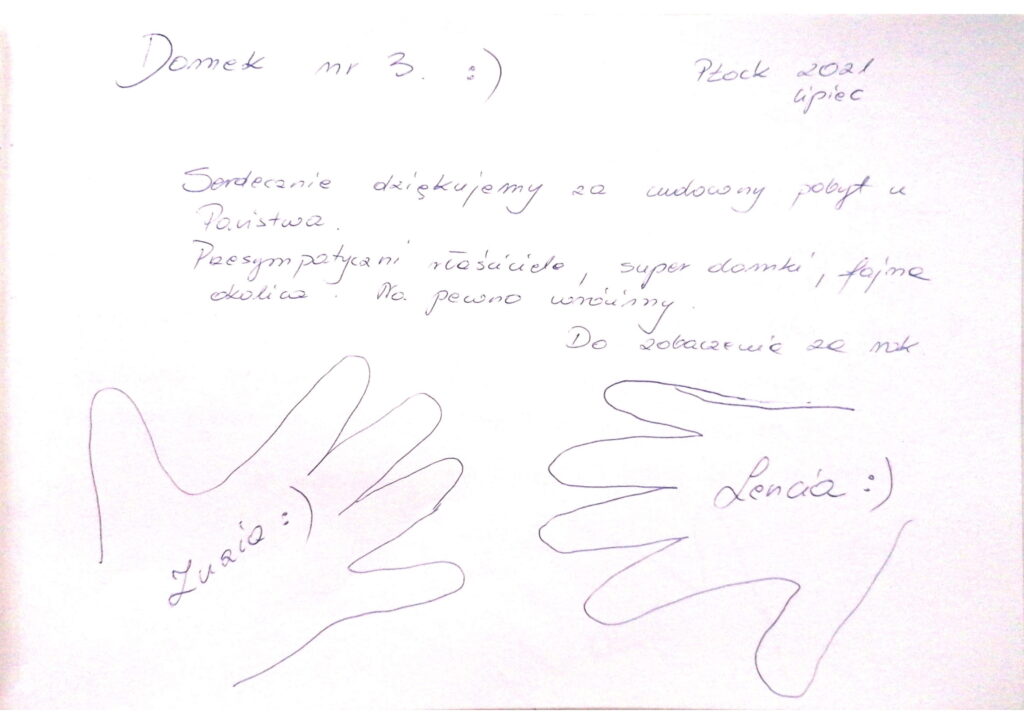 Domek nr 3. :)
Płock 2021
lipiec
Serdecznie dziękujemy za cudowny pobyt u
Państwa.
Przesympatyczni właściciele, super domki, fajna
okolica. Na pewno wrócimy.
Do zobaczenia za rok.
Zuzia :)
Lencia :)